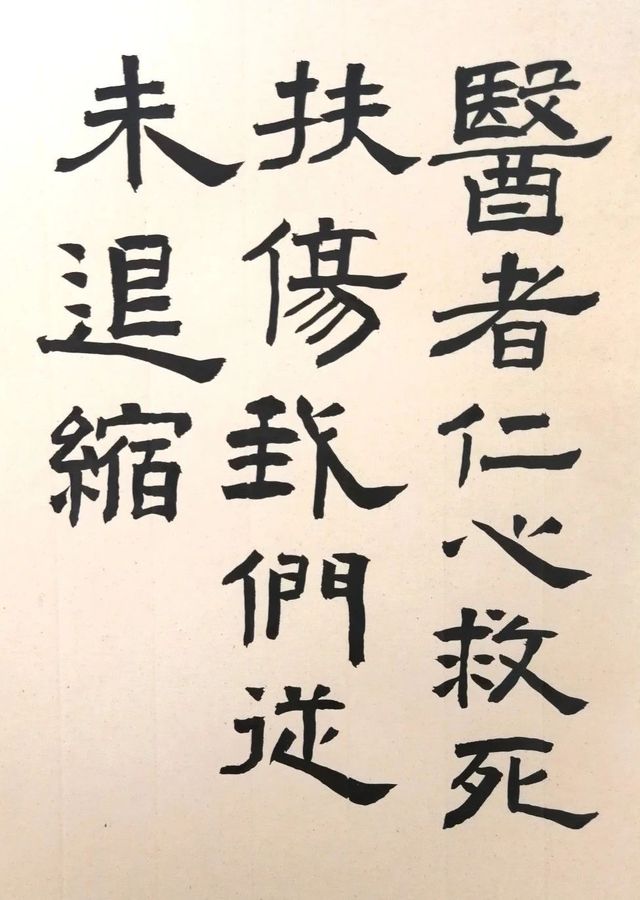 醫者仁心救死
扶傷我們從
未退縮